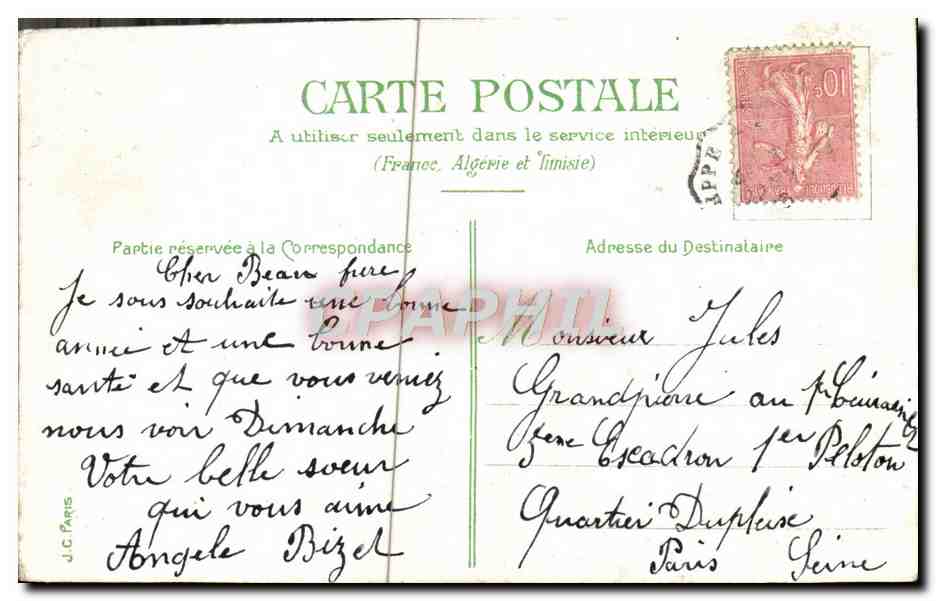 CARTE POSTALE
A utiliser seulement dans le service intérieur
(France, Algérie et Tunisie)
10c
APPE
Partie réservée à la Correspondance
Cher Beau frere
Je vous souhaite une bonne
année et une bonne
santé et que vous veniez
nous voir Dimanche
Votre belle soeur
qui vous aime
Angele Bizet
J.C. PARIS
CPAPHIL
Adresse du Destinataire
Monsieur Jules
Grandpierre au 1er Cuirassiez
3eme Escadron 1er Peloton
Quartier Dupleixe
Paris Seine